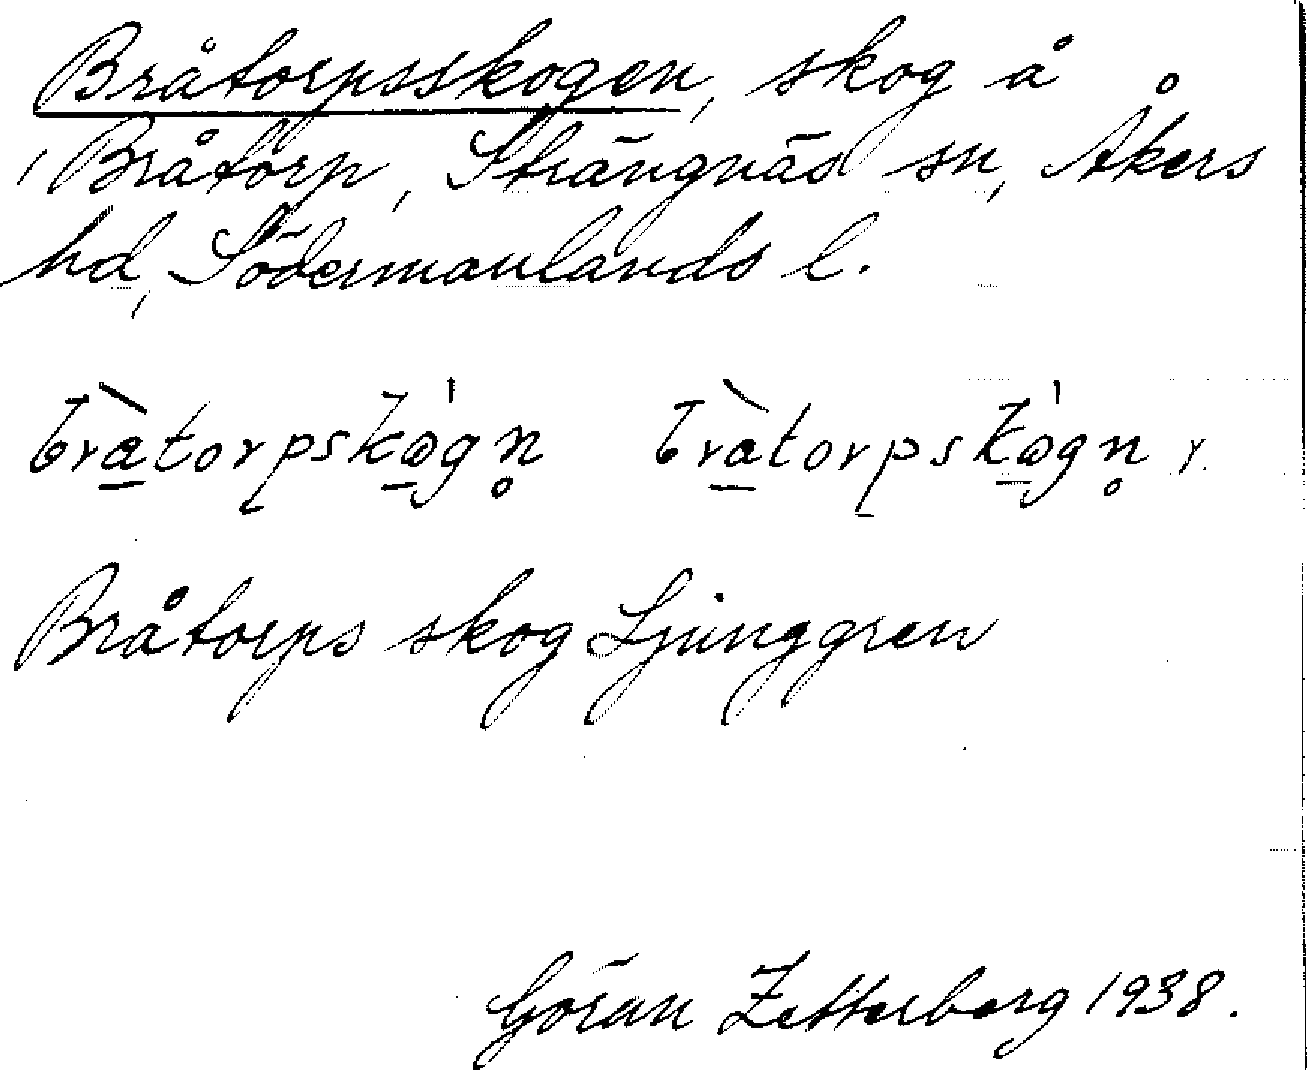 Bråtorpsskogen, skog å
Bråtorp, Strängnäs sn, Åkers
hd, Södermanlands l.
bràtorpskògn̥ bràtorpskògn̥ r.
Bråtorps skog Ljunggren
Göran Zetterberg 1938.